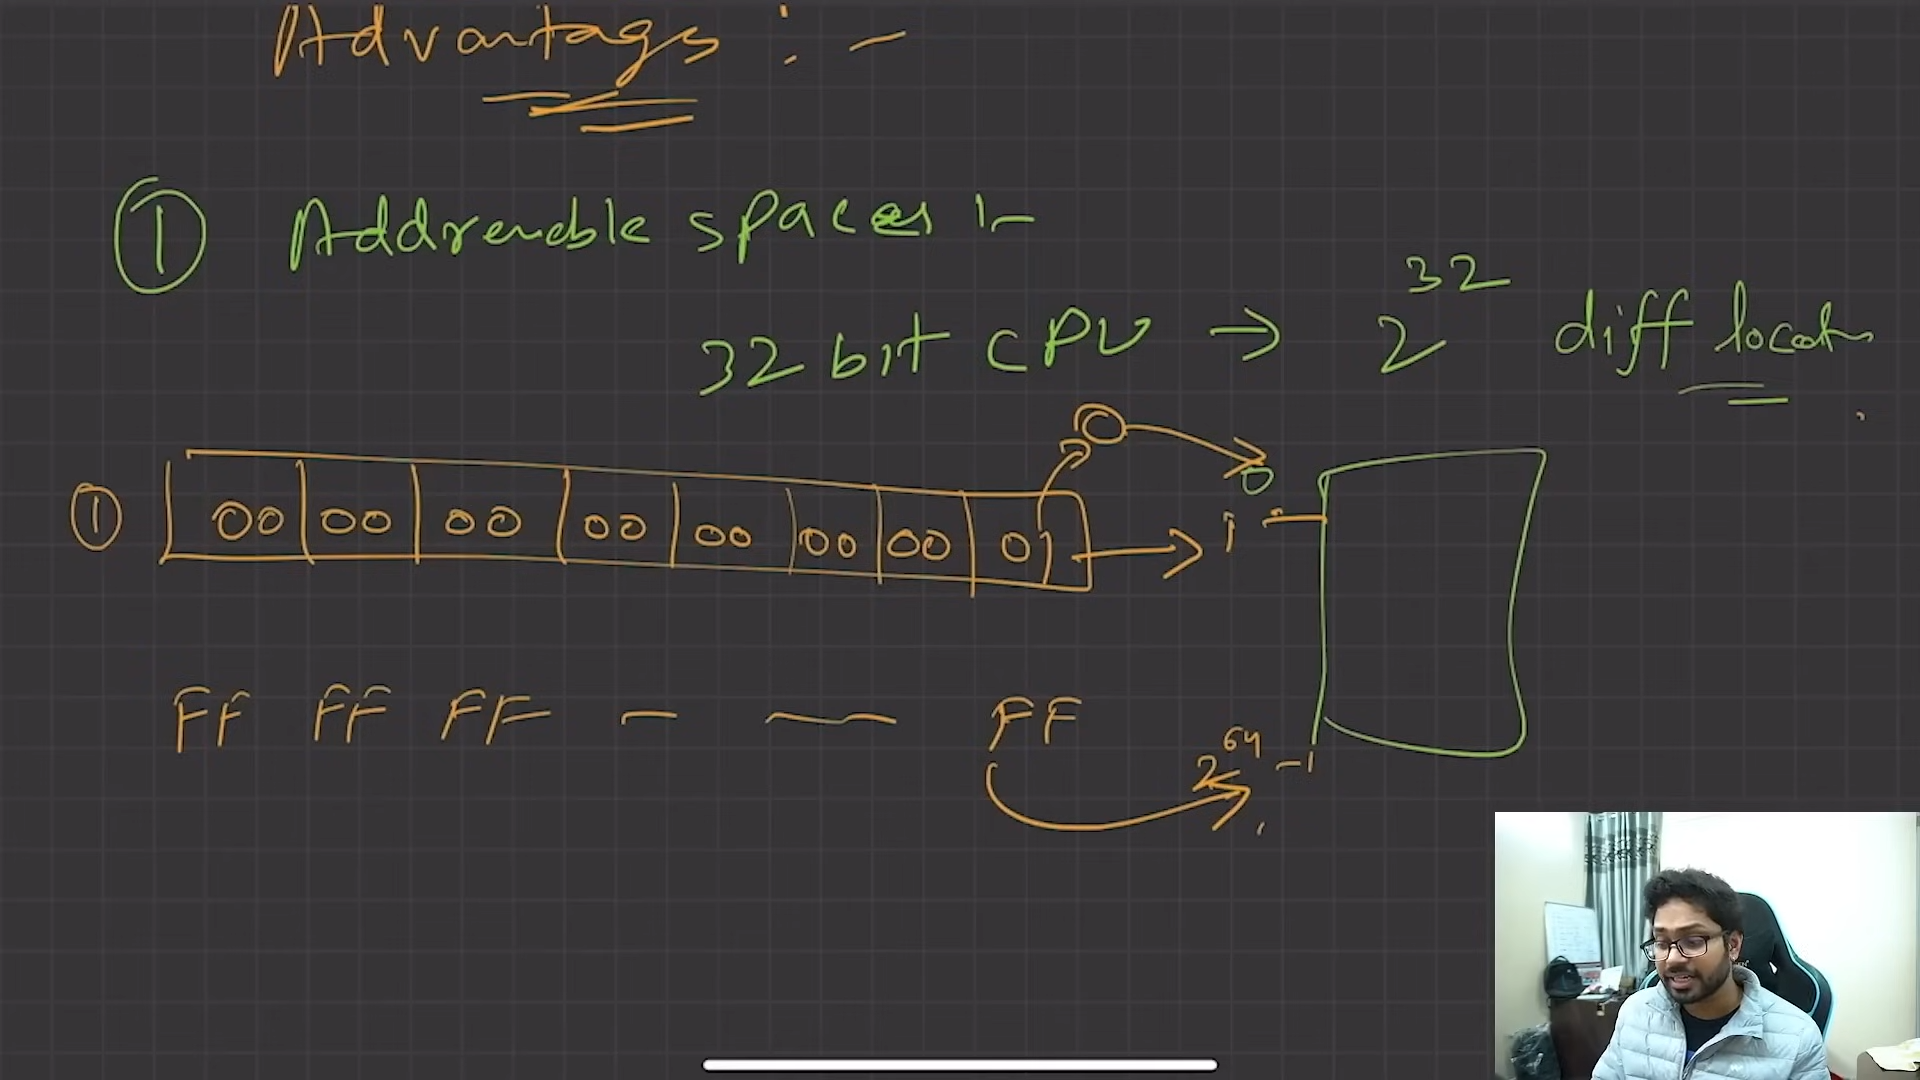 Advantags : -
① Addressable spaces :-
32 bit CPU → 2^32 diff locatn
0
0
① 00 00 00 00 00 00 00 01 → 1
FF FF FF - — FF
2^64 -1